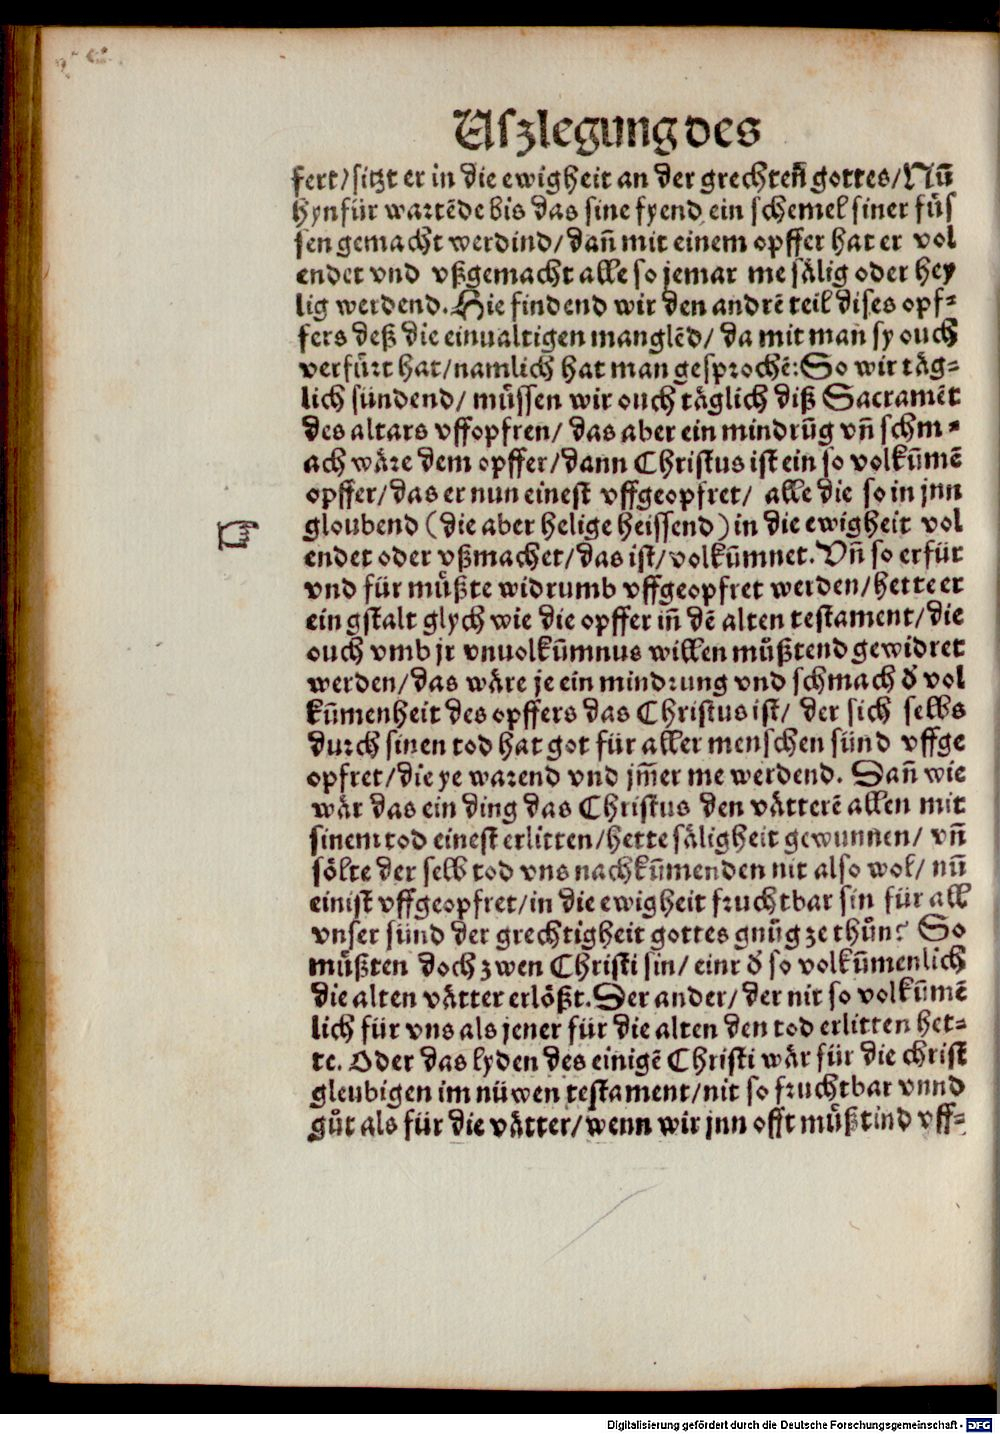 Uſzlegung des
fert/ ſitzt er in die ewigheit an der grechten̄ gottes/ Nūn
hynfür wartēde bis das ſine fyend ein ſchemel ſiner fůſ
ſen gemacht werdind/ dañ mit einem opffer hat er vol
endet vnd vßgemacht alle ſo jemar me ſälig oder hey
lig werdend. Hie findend wir den andrē teil diſes opf⸗
fers deß die einualtigen manglēd/ da mit man ſy ouch
verfůrt hat/ namlich hat man geſprochē: So wir täg⸗
lich ſündend/ müſſen wir ouch täglich diß Sacramēt
des altars vffopfren/ das aber ein mindrūg vñ ſchm⸗
ach wäre dem opffer/ dann Chriſtus iſt ein ſo volkūmē
opffer/ das er nun eineſt vffgeopfret/ alle die ſo in jnn
gloubend (die aber helige heiſſend) in die ewigheit vol
endet oder vßmachet/ das iſt/ volkūmnet. Vñ ſo er für
vnd für müßte widrumb vffgeopfret werden/ hette er
ein gſtalt glych wie die opffer iñ dē alten teſtament/ die
ouch vmb jr vnuolkūmnus willen müßtend gewidret
werden/ das wäre je ein mindrung vnd ſchmach d̄ vol
kūmenheit des opffers das Chriſtus iſt/ der ſich ſelbs
durch ſinen tod hat got für aller menſchen ſünd vffge
opfret/ die ye warend vnd jm̄er me werdend. Dañ wie
wär das ein ding das Chriſtus den vätterē allen mit
ſinem tod eineſt erlitten/ hette ſäligheit gewunnen/ vñ
ſölte der ſelb tod vns nachkūmenden nit alſo wol/ nūn
einiſt vffgeopfret/ in die ewigheit fruchtbar ſin für all
vnſer ſünd der grechtigheit gottes gnůg ze thůn? So
müßten doch zwen Chriſti ſin/ einr d̄ ſo volkūmenlich
die alten vätter erlößt. Der ander/ der nit ſo volkūmē
lich für vns als jener für die alten den tod erlitten het⸗
te. Oder das lyden des einigē Chriſti wär für die chriſt
gleubigen im nüwen teſtament/ nit ſo fruchtbar vnnd
gůt als für die vätter/ wenn wir jnn offt müßtind vff⸗
Digitalisierung gefördert durch die Deutsche Forschungsgemeinschaft - DFG